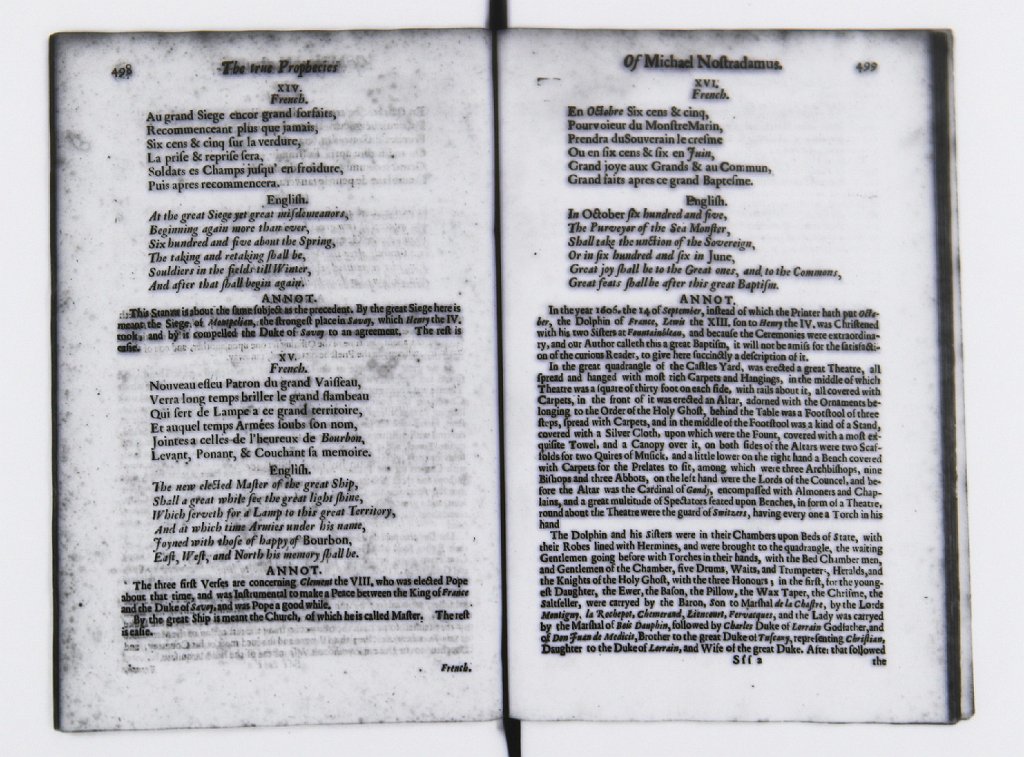 498 The true Prophecies
XIV.
French.
Au grand Siege encor grand forfaits,
Recommenceant plus que jamais,
Six cens & cinq ſur la verdure,
La priſe & repriſe ſera,
Soldats es Champs juſqu' en froidure,
Puis apres recommencera.
Engliſh.
At the great Siege yet great miſdemeanors,
Beginning again more than ever,
Six hundred and five about the Spring,
The taking and retaking ſhall be,
Souldiers in the fields till Winter,
And after that ſhall begin again.
ANNOT.
This Stanza is about the ſame ſubject as the precedent. By the great Siege here is
meant the Siege of Montpelian, the ſtrongeſt place in Savoy, which Henry the IV.
took, and by it compelled the Duke of Savoy to an agreement. The reſt is
eaſie.
XV.
French.
Nouveau eſleu Patron du grand Vaiſſeau,
Verra long temps briller le grand flambeau
Qui ſert de Lampe a ce grand territoire,
Et auquel temps Armées ſoubs ſon nom,
Jointes a celles de l'heureux de Bourbon,
Levant, Ponant, & Couchant ſa memoire.
Engliſh.
The new elected Maſter of the great Ship,
Shall a great while ſee the great light ſhine,
Which ſerveth for a Lamp to this great Territory,
And at which time Armies under his name,
Joyned with thoſe of happy of Bourbon,
Eaſt, Weſt, and North his memory ſhall be.
ANNOT.
The three firſt Verſes are concerning Clement the VIII, who was elected Pope
about that time, and was Inſtrumental to make a Peace between the King of France
and the Duke of Savoy, and was Pope a good while.
By the great Ship is meant the Church, of which he is called Maſter. The reſt
is eaſie.
French.
Of Michael Noſtradamus. 499
XVI.
French.
En Octobre Six cens & cinq,
Pourvoieur du Monſtre Marin,
Prendra du Souverain le creſme
Ou en ſix cens & ſix en Juin,
Grand joye aux Grands & au Commun,
Grand faits apres ce grand Bapteſme.
Engliſh.
In October ſix hundred and five,
The Purveyor of the Sea Monſter,
Shall take the unction of the Sovereign,
Or in ſix hundred and ſix in June,
Great joy ſhall be to the Great ones, and to the Commons,
Great feats ſhall be after this great Baptiſm.
ANNOT.
In the year 1606. the 14 of September, inſtead of which the Printer hath put Octo-
ber, the Dolphin of France, Lewis the XIII, ſon to Henry the IV. was Chriſtened
with his two Siſters at Fountainbleau, and becauſe the Ceremonies were extraordina-
ry, and our Author calleth this a great Baptiſm, it will not be amiſs for the ſatisfacti-
on of the curious Reader, to give here ſuccinctly a deſcription of it.
In the great quadrangle of the Caſtles Yard, was erected a great Theatre, all
ſpread and hanged with moſt rich Carpets and Hangings, in the middle of which
Theatre was a ſquare of thirty foot on each ſide, with rails about it, all covered with
Carpets, in the front of it was erected an Altar, adorned with the Ornaments be-
longing to the Order of the Holy Ghoſt, behind the Table was a Footſtool of three
ſteps, ſpread with Carpets, and in the middle of the Footſtool was a kind of a Stand,
covered with a Silver Cloth, upon which were the Fount, covered with a moſt ex-
quiſite Towel, and a Canopy over it, on both ſides of the Altars were two Scaf-
folds for two Quires of Muſick, and a little lower on the right hand a Bench covered
with Carpets for the Prelates to ſit, among which were three Archbiſhops, nine
Biſhops and three Abbots, on the left hand were the Lords of the Councel, and be-
fore the Altar was the Cardinal of Gondy, encompaſſed with Almoners and Chap-
lains, and a great multitude of Spectators ſeated upon Benches, in form of a Theatre,
round about the Theatre were the guard of Switzers, having every one a Torch in his
hand
The Dolphin and his Siſters were in their Chambers upon Beds of State, with
their Robes lined with Hermines, and were brought to the quadrangle, the waiting
Gentlemen going before with Torches in their hands, with the Bed Chamber men,
and Gentlemen of the Chamber, five Drums, Waits, and Trumpeters, Heralds, and
the Knights of the Holy Ghoſt, with the three Honours; in the firſt, for the young-
eſt Daughter, the Ewer, the Baſon, the Pillow, the Wax Taper, the Chriſme, the
Saltſeller, were carryed by the Baron, Son to Marſhal de la Chaſtre, by the Lords
Montigny, la Rochepot, Chemerand, Liencourt, Fervacques, and the Lady was carryed
by the Marſhal of Bois Dauphin, followed by Charles Duke of Lorrain Godfather, and
of Don Juan de Medicis, Brother to the great Duke of Tuſcany, repreſenting Chriſtian,
Daughter to the Duke of Lorrain, and Wife of the great Duke. After that followed
Sſſ 2 the